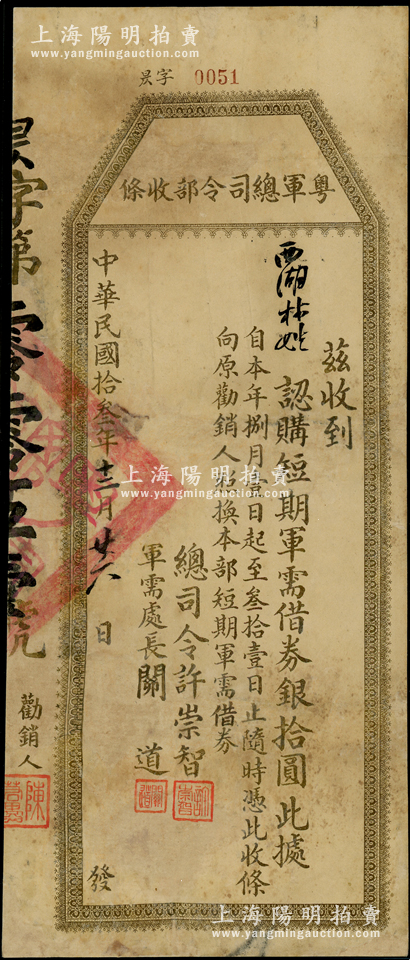 上海陽明拍賣
www.yangmingauction.com
昃字 0051
粵軍總司令部收條
茲收到
西湖林姓 認購短期軍需借券銀拾圓此據
自本年捌月壹日起至叁拾壹日止隨時憑此收條
向原勸銷人名換本部短期軍需借券
總司令許崇智
軍需處長關道
中華民國拾叁年十二月廿八日
發
昃字第零零五壹號
勸銷人
上海陽明拍賣
www.yangmingauction.com
上海陽明拍賣
www.yangmingauction.com